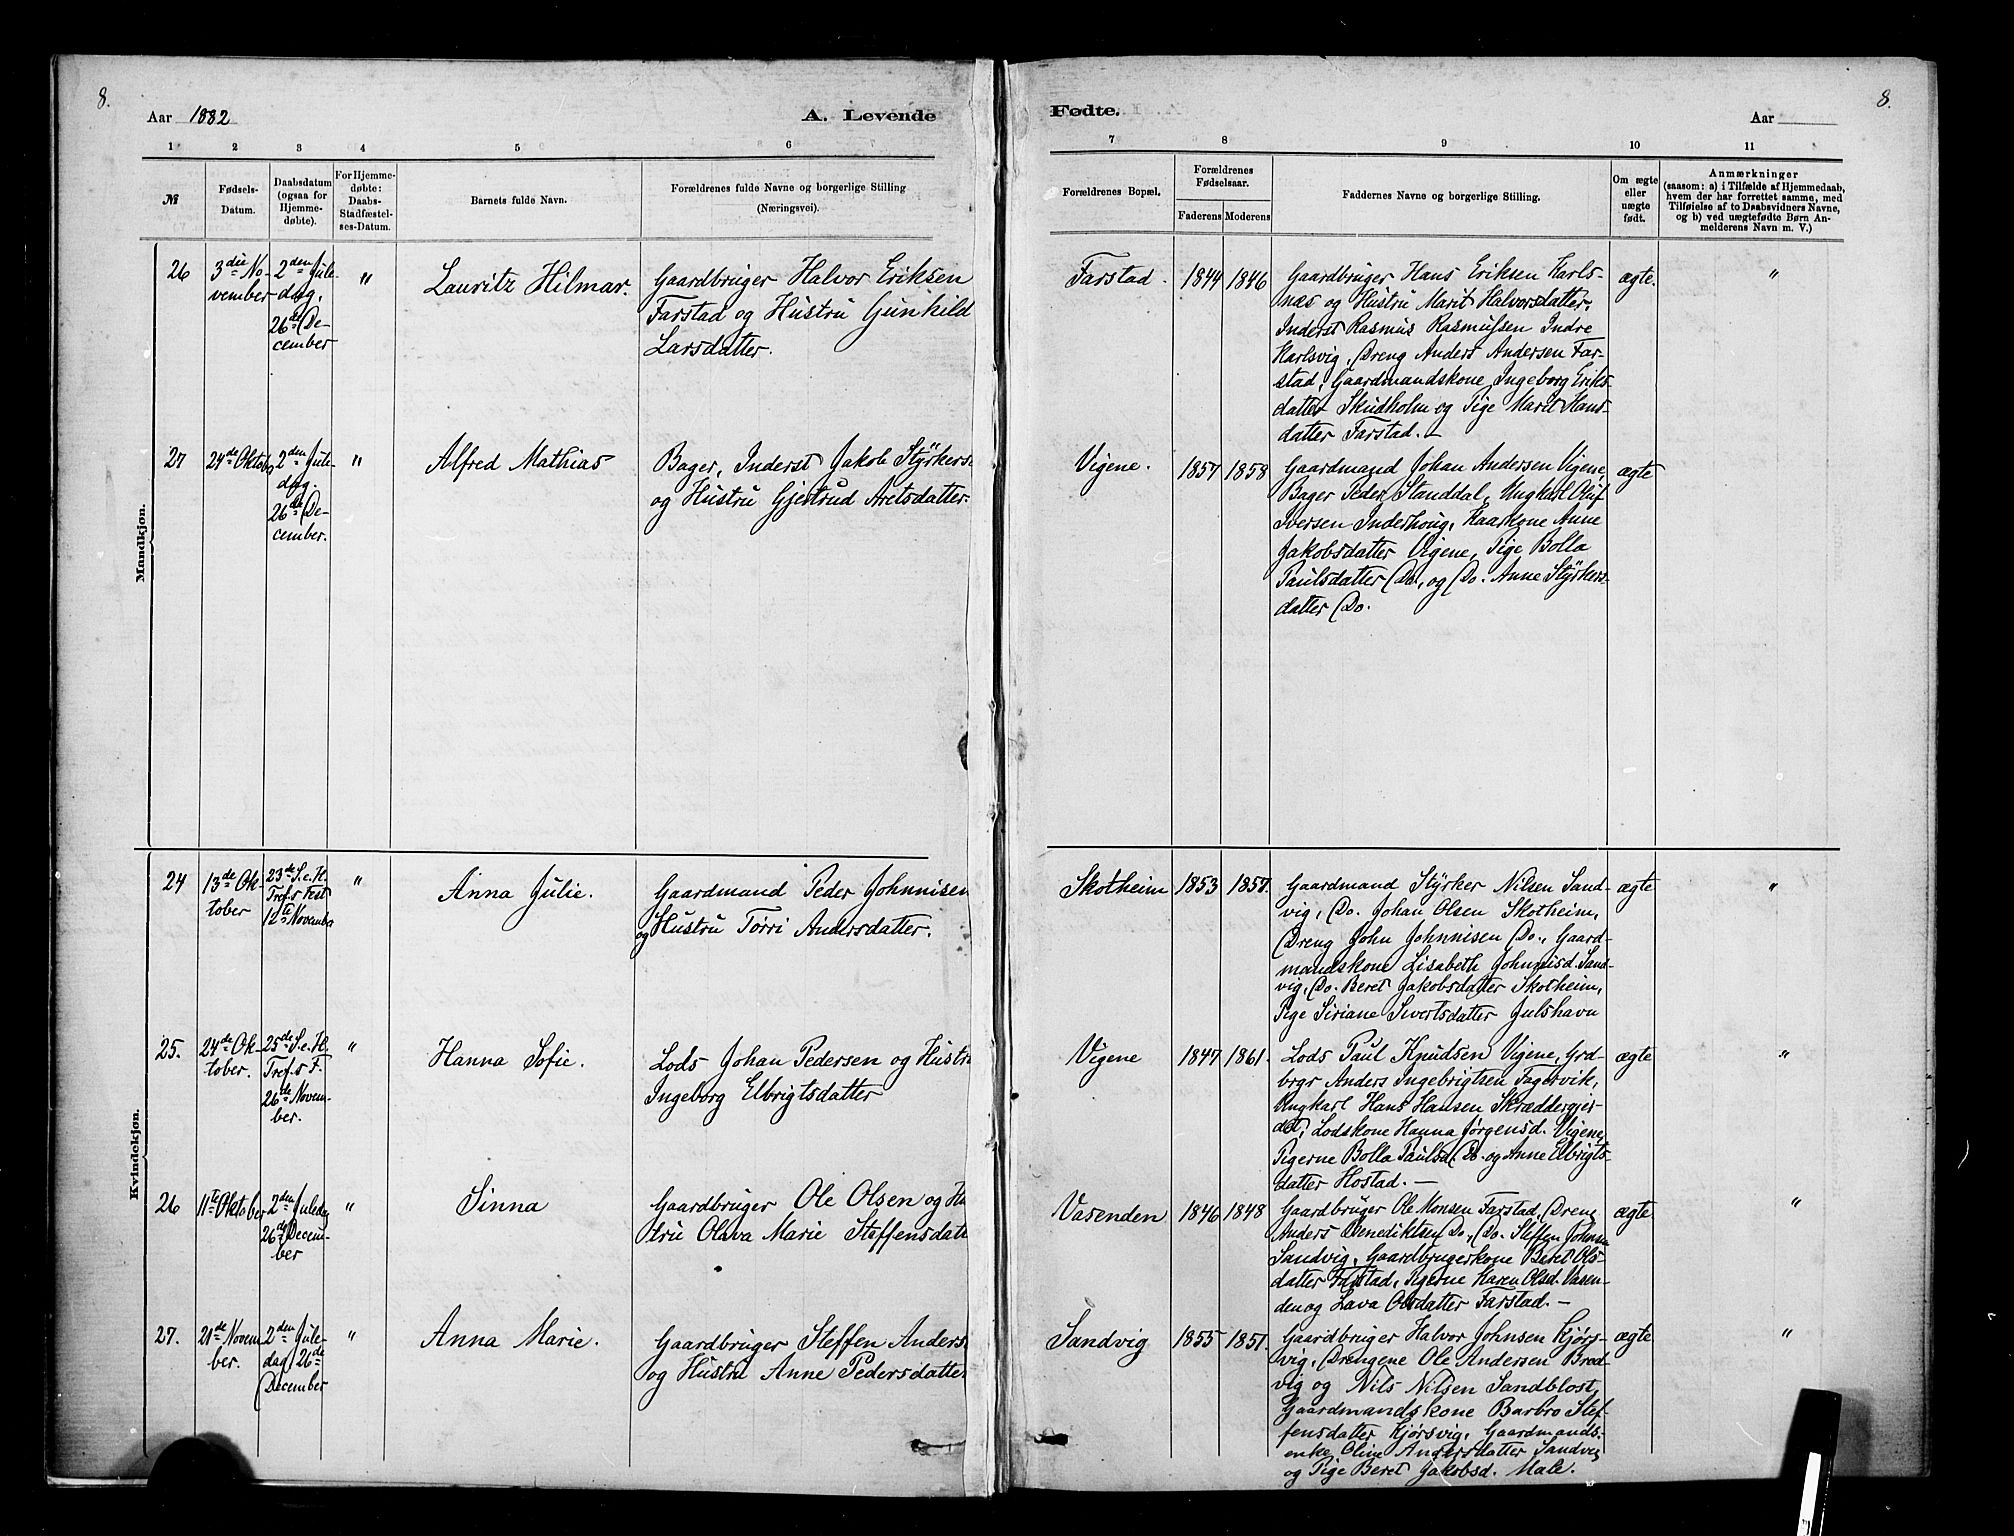 8.
Aar 1882
A. Levende
Fødte.
Aar
8.
1 2 3 4 5 6
7 8 9 10 11
№
Fødsels-
Datum.
Daabsdatum
(ogsaa for
Hjemme-
døbte).
For Hjemme-
døbte:
Daabs-
Stadfæstel-
ses-Datum.
Barnets fulde Navn.
Forældrenes fulde Navne og borgerlige Stilling
(Næringsvei).
Forældrenes Bopæl.
Forældrenes
Fødselsaar.
Faderens Moderens
Faddernes Navne og borgerlige Stilling.
Om ægte
eller
uægte
født.
Anmærkninger
(saasom: a) i Tilfælde af Hjemmedaab,
hvem der har forrettet samme, med
Tilføielse af to Daabsvidners Navne,
og b) ved uægtefødte Børn An-
melderens Navn m. V.)
Mandkjøn.
26
3die No-
vember
2den Jule-
dag.
26de De-
cember
"
Lauritz Hilmar.
Gaardbruger Halvor Eriksen
Farstad og Hustru Gunhild
Larsdatter.
Farstad.
1844 1846
Gaardbruger Hans Eriksen Karls-
næs og Hustru Marit Halvorsdatter,
Inderst Rasmus Rasmussen Indre
Karlsvig, Dreng Anders Andersen Far-
stad, Gaardmandskone Ingeborg Eriks-
datter Skudholm og Pige Marit Hans-
datter Farstad.—
ægte.
"
27
24de Oktob
2den Jule-
dag.
26de De-
cember.
"
Alfred Mathias
Bager, Inderst Jakob Styrkers.
og Hustru Gjertrud Aretsdatter.
Vigene.
1857 1858
Gaardmand Johan Andersen Vigene,
Bager Peder Standdal, Ungkarl Oluf
Iversen Inderhoug, Kaarkone Anne
Jakobsdatter Vigene, Pige Bolla
Paulsdatter Do, og Do. Anne Styrkers-
datter Do.
ægte
Kvindekjøn.
24
13de Ok-
tober
23de S. e. H.
Tref.s Fest
12te Novembr
"
Anna Julie.
Gaardmand Peder Johnnisen
og Hustru Torri Andersdatter.
Skotheim
1853 1857.
Gaardmand Styrker Nilsen Sand-
vig, Do. Johan Olsen Skotheim,
Dreng John Johnnisen Do., Gaard-
mandskone Lisabeth Johnnisd. Sand-
vig, Do. Beret Jakobsdatter Skotheim,
Pige Siriane Sivertsdatter Julshavn
ægte
"
25.
24de Ok-
tober.
25de S. e. H.
Tref.s F.
26de Novem-
ber.
"
Hanna Sofie.
Lods Johan Pedersen og Hustr
Ingeborg Elbrigtsdatter
Vigene
1847 1861.
Lods Paul Knudsen Vigene, Grd-
brgr Anders Ingebrigtsen Fagervik,
Ungkarl Hans Hansen Skræddergjer-
det, Lodskone Hanna Jørgensd. Vigene,
Pigerne Bolla Paulsd. Do. og Anne Elbrigts-
datter Hostad.—
ægte
"
26
11te Oktober
2den Juledag
26de Decem-
ber
"
Sinna
Gaardbruger Ole Olsen og Hu
stru Olava Marie Steffensdatt
Vasenden
1846 1848
Gaardbruger Ole Monsen Farstad, Dreng
Anders Benediktsen Do, Do. Steffen Johnsen
Sandvig, Gaardbrugerkone Beret Ols-
datter Farstad, Pigerne Karen Olsd. Vasen-
den og Lava Olsdatter Farstad.—
ægte
"
27.
21de Novem
ber.
2den Jule-
dag, 26de
December
"
Anna Marie.
Gaardbruger Steffen Anders.
og Hustru Anne Pedersdatter
Sandvig
1855 1851.
Gaardbruger Halvor Johnsen Kjørs-
vig, Drengene Ole Andersen Bred-
vig og Nils Nilsen Sandblost,
Gaardmandskone Barbro Stef-
fensdatter Kjørsvig, Gaardmands-
enke Oline Andersdatter Sandvig
og Pige Beret Jakobsd. Male.
ægte
"